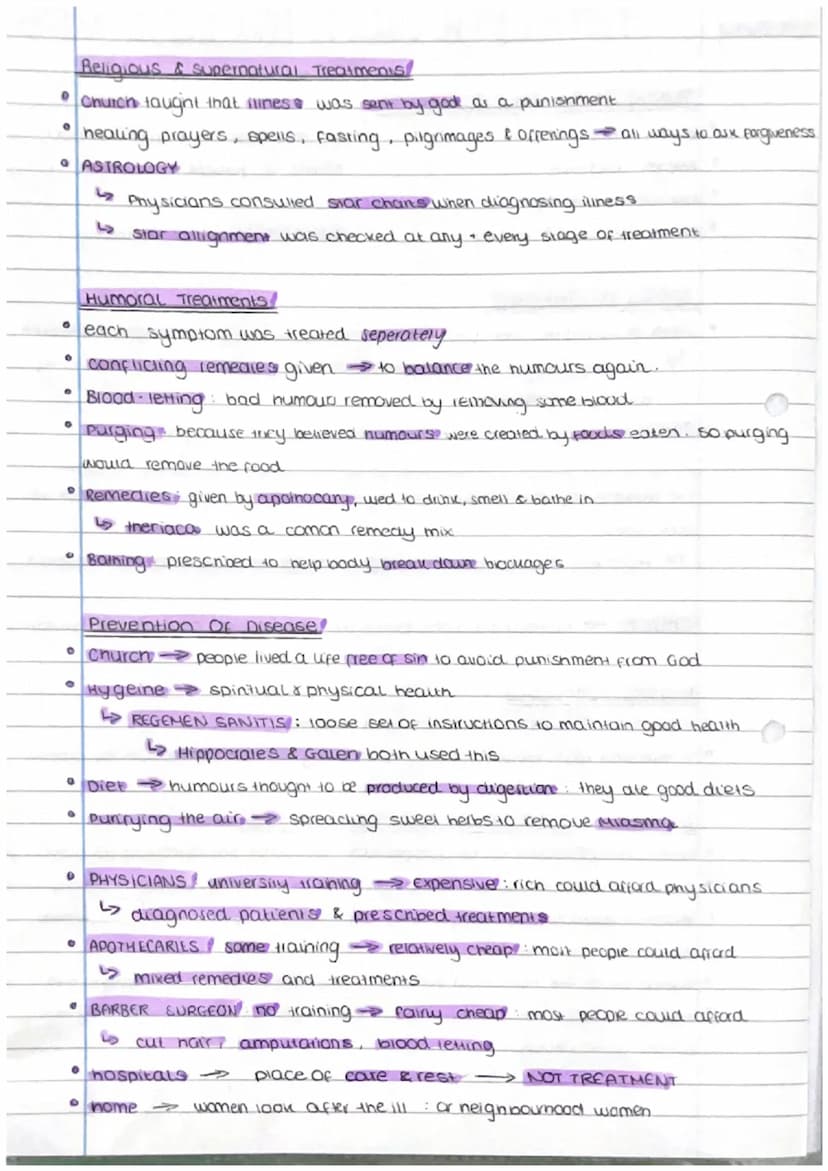 Religious & Supernatural Treatments!
• Church taught that illness was sent by god as a punishment
• healing prayers, spells, fasting, pilgrimages & offerings → all ways to ask forgiveness
• ASTROLOGY
↳ Physicians consulted star charts when diagnosing illness
↳ star allignment was checked at any + every stage of treatment
Humoral Treatments!
• each symptom was treated seperately
• conflicting remedies given → to balance the humours again.
• Blood-letting: bad humour removed by removing some blood
• Purging: because they believed humours were created by foods eaten. so purging
would remove the food
• Remedies: given by apothocary, used to drink, smell & bathe in
↳ theriaca was a comon remedy mix
• Bathing: prescribed to help body break down blockages
Prevention Of Disease!
• Church → people lived a life free of sin to avoid punishment from God
• Hygeine → spiritual & physical health
↳ REGEMEN SANITIS: loose set of instructions to maintain good health
↳ Hippocrates & Galen both used this
• Diet → humours thought to be produced by digestion: they ate good diets
• Purifying the air → spreading sweet herbs to remove Miasma
• PHYSICIANS! university training → expensive: rich could afford physicians
↳ diagnosed patients & prescribed treatments
• APOTHECARIES! some training → relatively cheap: most people could afford
↳ mixed remedies and treatments
• BARBER SURGEON! no training → fairly cheap: most people could afford
↳ cut hair, amputations, blood letting
• hospitals → place of care & rest → NOT TREATMENT
• home → women look after the ill : or neighbourhood women